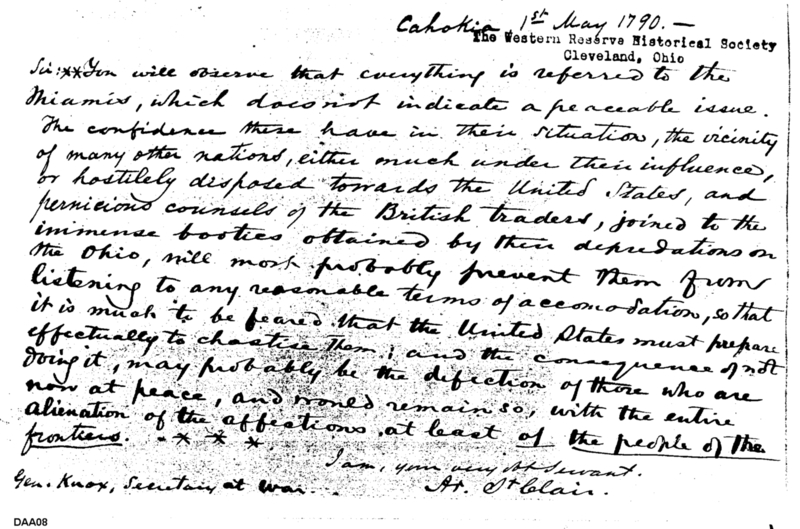 Cahokia 1st May 1790. —
The Western Reserve Historical Society
Cleveland, Ohio
Sir: **You will observe that everything is referred to the
Miamis, which does not indicate a peaceable issue.
The confidence these have in their situation, the vicinity
of many other nations, either much under their influence,
or hostilely disposed towards the United States, and
pernicious counsels of the British traders, joined to the
immense booties obtained by their depredations on
the Ohio, will most probably prevent them from
listening to any reasonable terms of accomodation, so that
it is much to be feared that the United States must prepare
effectually to chastise them; and the consequence of not
doing it, may probably be the defection of those who are
now at peace, and would remain so, with the entire
alienation of the affections at least of the people of the
frontiers. - * * *
I am, your very ob Servant.
Gen. Knox, Secretary at War. Ar. St Clair.
DAA08